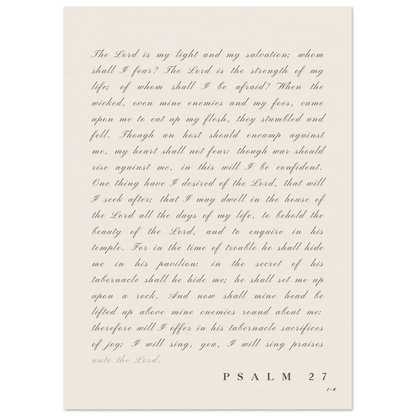 The Lord is my light and my salvation; whom
shall I fear? The Lord is the strength of my
life; of whom shall I be afraid? When the
wicked, even mine enemies and my foes, came
upon me to eat up my flesh, they stumbled and
fell. Though an host should encamp against
me, my heart shall not fear: though war should
rise against me, in this will I be confident.
One thing have I desired of the Lord, that will
I seek after; that I may dwell in the house of
the Lord all the days of my life, to behold the
beauty of the Lord, and to enquire in his
temple. For in the time of trouble he shall hide
me in his pavilion: in the secret of his
tabernacle shall he hide me; he shall set me up
upon a rock. And now shall mine head be
lifted up above mine enemies round about me:
therefore will I offer in his tabernacle sacrifices
of joy; I will sing, yea, I will sing praises
unto the Lord.
PSALM 27
1-6